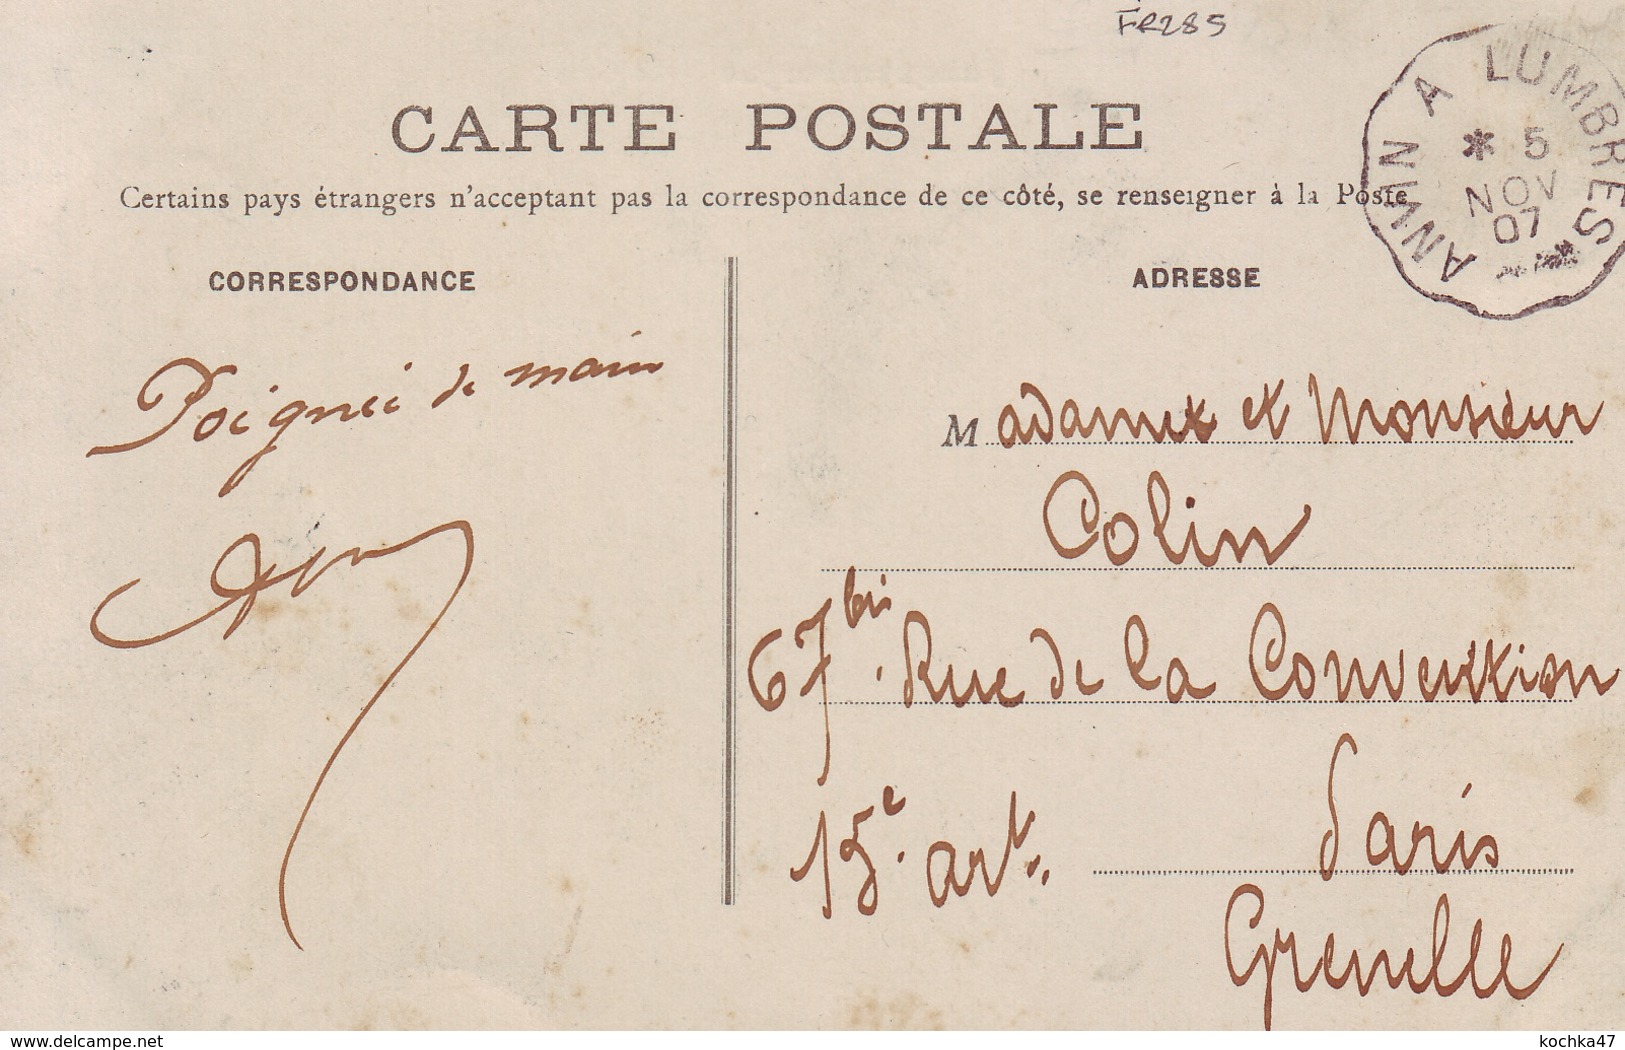 FR285
CARTE POSTALE
Certains pays étrangers n'acceptant pas la correspondance de ce côté, se renseigner à la Poste
ANVIN A LUMBRES
* 5
NOV
07
CORRESPONDANCE
ADRESSE
Poignée de main
Madame et Monsieur
Colin
67 bis Rue de la Convention
15e. art.
Paris
Grenelle
www.delcampe.net
kochka47